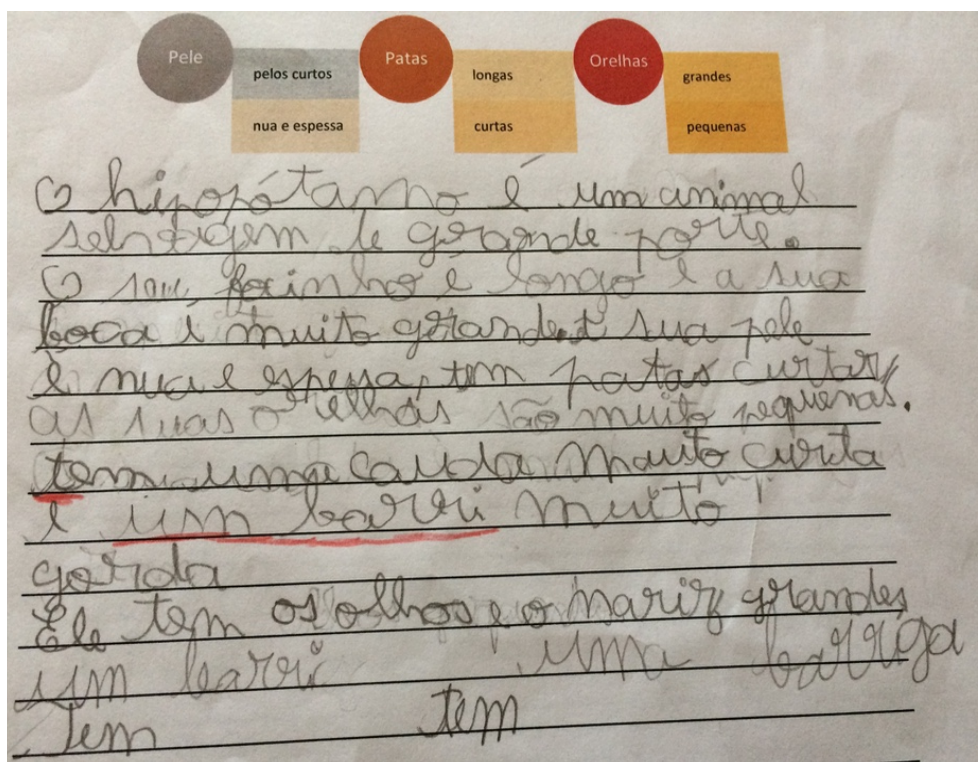 Pele Patas Orelhas
pelos curtos longas grandes
nua e espessa curtas pequenas
O hipopótamo é um animal
selvagem de grande porte.
O seu focinho é longo e a sua
boca é muito grande. A sua pele
é nua e espessa, tem patas curtas,
as suas orelhas são muito pequenas.
tem uma cauda muito curta
e um barri muito
gorda
Ele tem os olhos e o nariz grandes
um barri uma barriga
tem tem